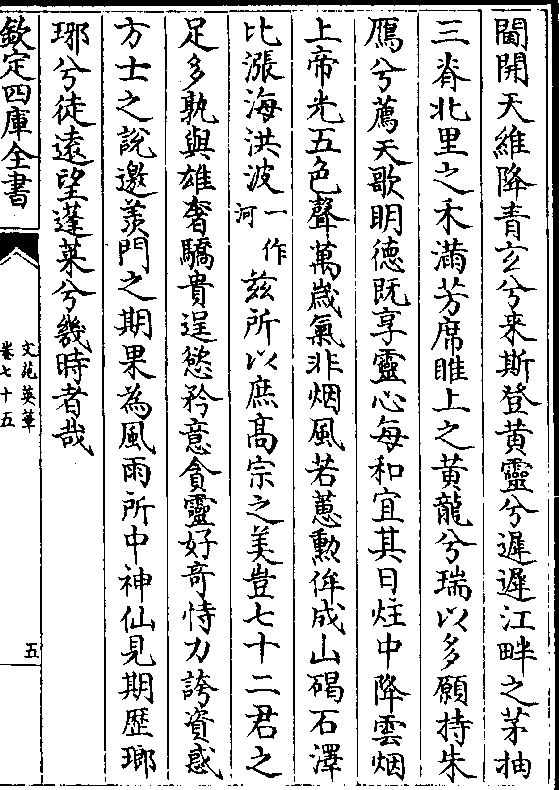 閶開天維降青玄兮来斯登黄靈兮遲遲江畔之茅抽
三脊北里之禾滿芳席睢上之黄龍兮瑞以多願持朱
鴈兮薦天歌明德既享靈心每和宜其日炷中降雲烟
上帝光五色聲萬歲氣非烟風若蔥勲侔成山碣石澤
比漲海洪波一作河兹所以庶髙宗之美豈七十二君之
足多孰與雄奢驕貴逞慾矜意貪靈好奇恃力誇資惑
方士之說邀羨門之期果為風雨所中神仙見期歴瑯
琊兮徒遠望蓬莱兮幾時者哉
欽定四庫全書
文苑英華
卷七十五
五